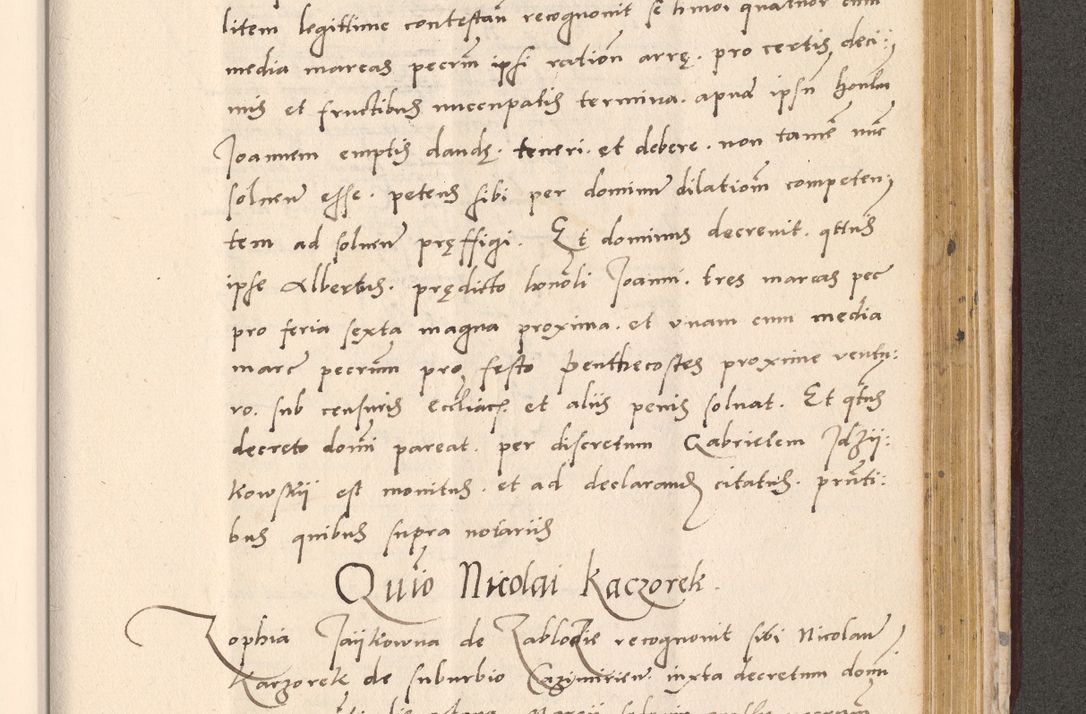 litem legittime contestan recognovit se hmoi quatuor cum
media marcas pecrm ipsi ration arrę. pro certis deci:
mis et fructibus nuccupatis termina. apud ipsu honlm
Joannem emptis dandę. teneri. et debere. non tame nuc
soluere esse. petens sibi per dominu dilatiom competen:
tem ad soluen pręffigi. Et dominus decrevit. qttus
ipse Albertus. prędicto honoli Joanni. tres marcas pec
pro feria sexta magna proxima. et vnam cum media
marc pecrum pro festo Penthecostes proxime ventu:
ro. sub censuris eccliacs. et aliis penis soluat. Et qtus
decreto domi pareat. per discretum Gabrielem Idzij:
kowskij est monitus. et ad declarand citatus. prnti:
bus quibus supra notariis
Quio Nicolai Kaczorek.
Zophia Jaijkowna de Zablocie recognovit sibi Nicolaum
Kaczorek de suburbio Cazimirien. iuxta decretum domi